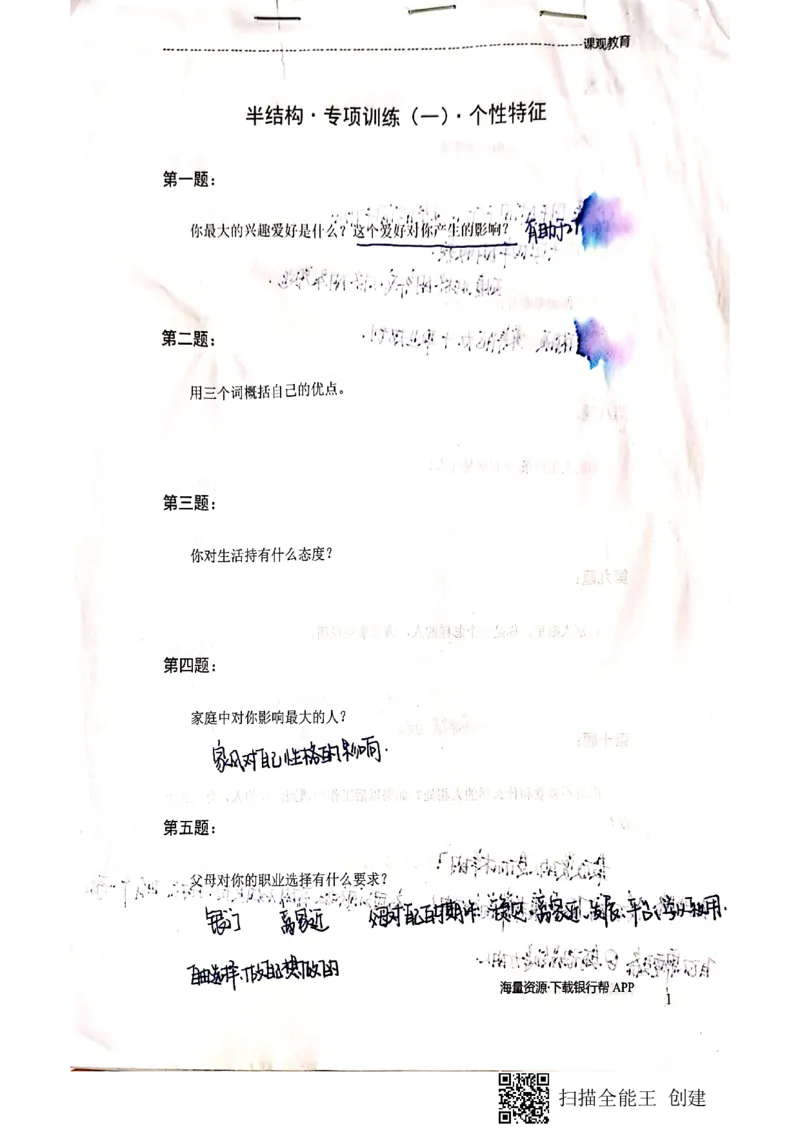 课观教育
半结构·专项训练（一）·个性特征
第一题：
你最大的兴趣爱好是什么？这个爱好对你产生的影响？ 有助于
第二题：
用三个词概括自己的优点。
第三题：
你对生活持有什么态度？
第四题：
家庭中对你影响最大的人？
家风对自己性格的影响.
第五题：
父母对你的职业选择有什么要求？
银行 离家近 父母对自己的期许 离家近 发展 平台
自由选择.做自己想做的
海量资源·下载银行帮 APP
1
扫描全能王 创建